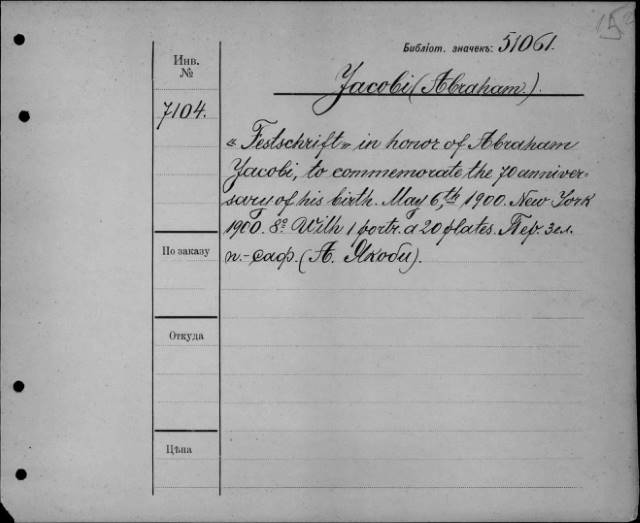 15
Библіот. значекъ: 51061.
Инв.
№
Jacobi (Abraham).
7104.
« Festschrift » in honor of Abraham
Jacobi, to commemorate the 70 anniver-
sary of his birth. May 6,th 1900. New York
1900. 8º. With 1 portr. a 20 plates. Пер. зел.
п.-саф. (А. Якоби).
По заказу
Откуда
Цѣна